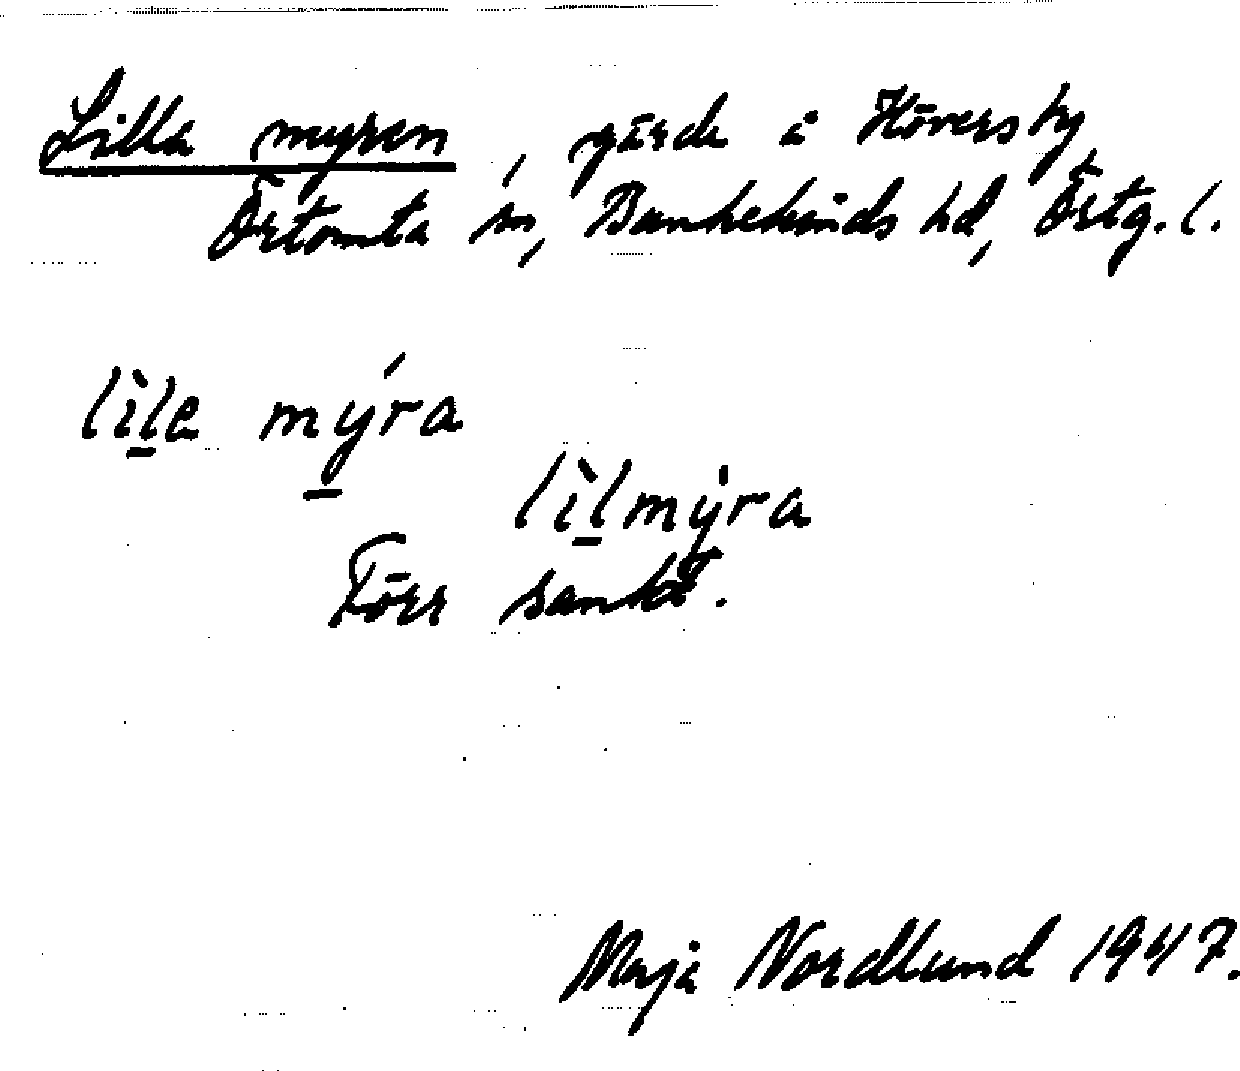 Lilla myren, gärde å Höversby
Örtomta sn, Bankekinds hd, Östg. l.
lìle mýra
lìlmyra
Förr sankt.
Maja Nordlund 1947.